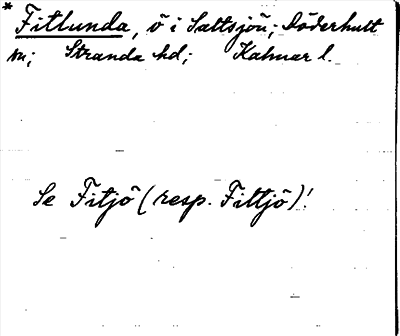 * Fitlunda, ö i Saltsjön; Döderhult
sn; Stranda hd; Kalmar l.
Se Fitjö (resp. Fittjö)!